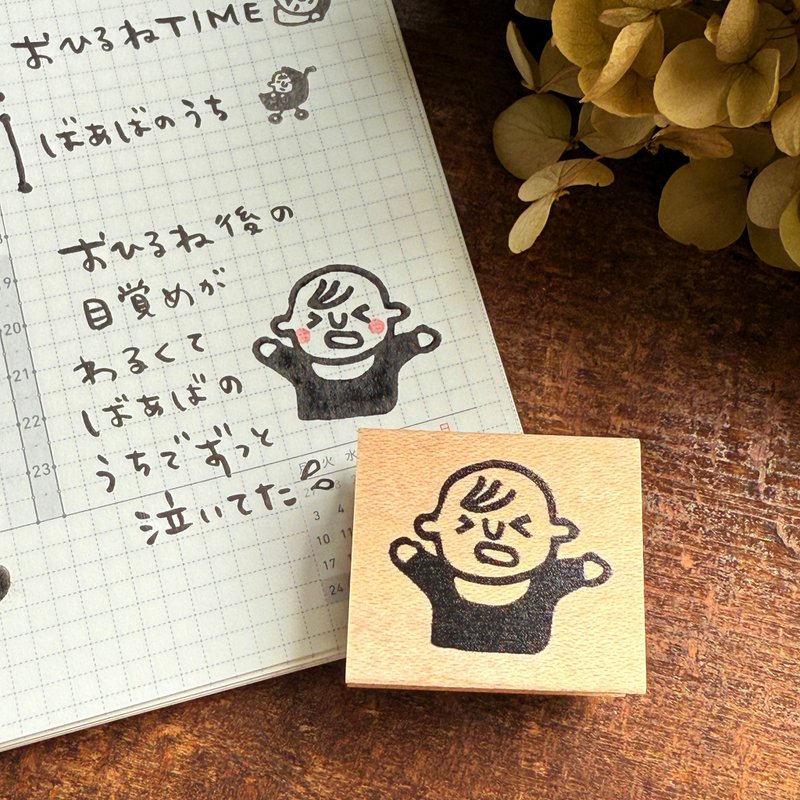 おひるねTIME
ばあばのうち
おひるね後の
目覚めが
わるくて
ばあばの
うちでずっと
泣いてた
9
20
21
22
23
日
火 水
3 4
10 11
17
24